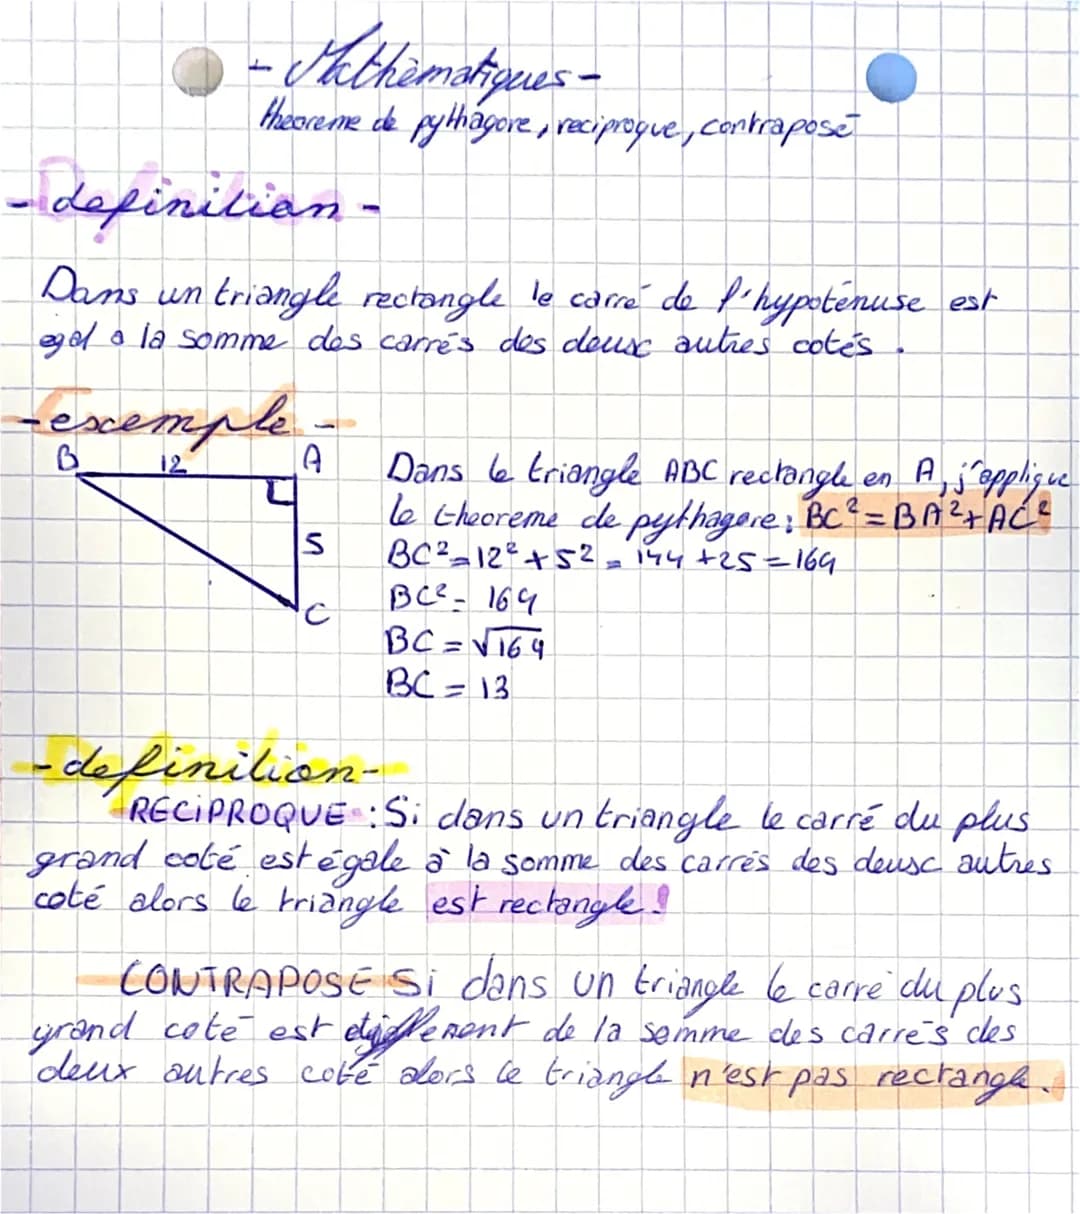 - Mathèmatiques -
theoreme de pythagore, reciproque, contraposé
- definition -
Dans un triangle rectangle le carré de l'hypoténuse est
egal a la somme des carrés des deux autres cotés .
- exemple -
B 12 A
5
C
Dans le triangle ABC rectangle en A, j'applique
le theoreme de pythagore : BC² = BA² + AC²
BC² = 12² + 5² = 144 + 25 = 169
BC² = 169
BC = √169
BC = 13
- definition -
RECIPROQUE : Si dans un triangle le carré du plus
grand coté est égale à la somme des carrés des deux autres
coté alors le triangle est rectangle !
CONTRAPOSE Si dans un triangle le carré du plus
grand coté est different de la somme des carrés des
deux autres coté alors le triangle n'est pas rectangle.